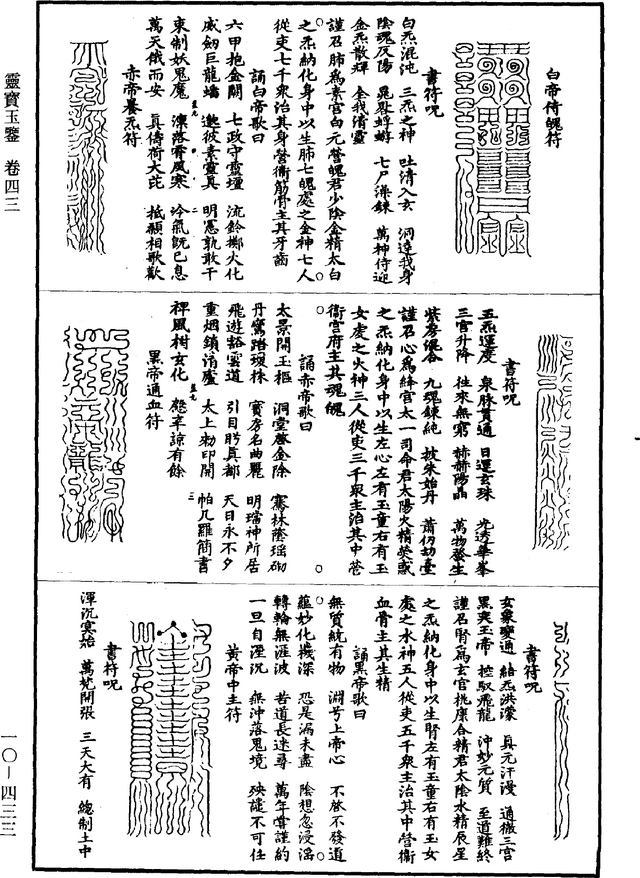 白帝侍魄符
書符呪
白炁混沌　三炁之神　吐清入玄　洞達我身
陰魂反陽　晃影蜉蝣　七尸澡鍊　萬神侍迎
金炁散輝　全我清靈
謹召肺為素官白元營魄君少陰金精太白
之炁納化身中以生肺七魄處之金神七人
從吏七千衆治其身營衛筋骨主其牙齒
誦白帝歌曰
六甲抱金關　七政守靈壇　流鈴擲火化
威劒巨龍蟠　邀彼素靈真　明憲孰敢干
束制妖鬼魔　凍落霄風寒　冷氣旣已息
萬天俄而安　真儔荷大茈　抵顙相歌歡
赤帝養炁符
書符呪
五炁運度　衆脉貫通　日選玄珠　光透華峯
三宫升降　往來無窮　赫赫陽晶　萬物發生
紫房混合　九魂鍊純　披朱始丹　蕭仞劫臺
謹召心為絳宮太一司命君太陽火精熒惑
之炁納化身中以生左心左有玉童右有玉
女處之火神三人從吏三千衆主治其中營
衛宫府主其魂魄
誦赤帝歌曰
太景開玉樞　洞堂啓金除　騫林蔭瑶砌
丹鸞踏瓊株　寳房名曲麗　明璫神所居
飛遊谿雲道　引目眄真都　天日永不夕
重烟鎖清廬　太上勑印開　帕几羅簡書
裨風樹玄化　愆辛諒有餘
黑帝通血符
書符呪
玄象變通　絡炁洪濛　真元汗漫　通微三宫
黑寞玉帝　控馭飛龍　沖妙元質　至道難終
謹召腎為玄官桃康合精君太陰水精辰星
之炁納化身中以生腎左有玉童右有玉女
處之水神五人從吏五千衆主治其中營衛
血骨主其生精
誦黑帝歌曰
無質統有物　淵兮上帝心　不啓不發道
蘊妙化機深　恐是漏未盡　陰想忽浸滛
轉輪無涯波　苦道長迷尋　萬年嘗謹約
一旦自湮沉　無沖落鬼境　殃譴不可任
黄帝中主符
書符呪
渾沉冥始　萬梵開張　三天大有　總制土中
靈寳玉鑒　卷四三
一〇－四三三